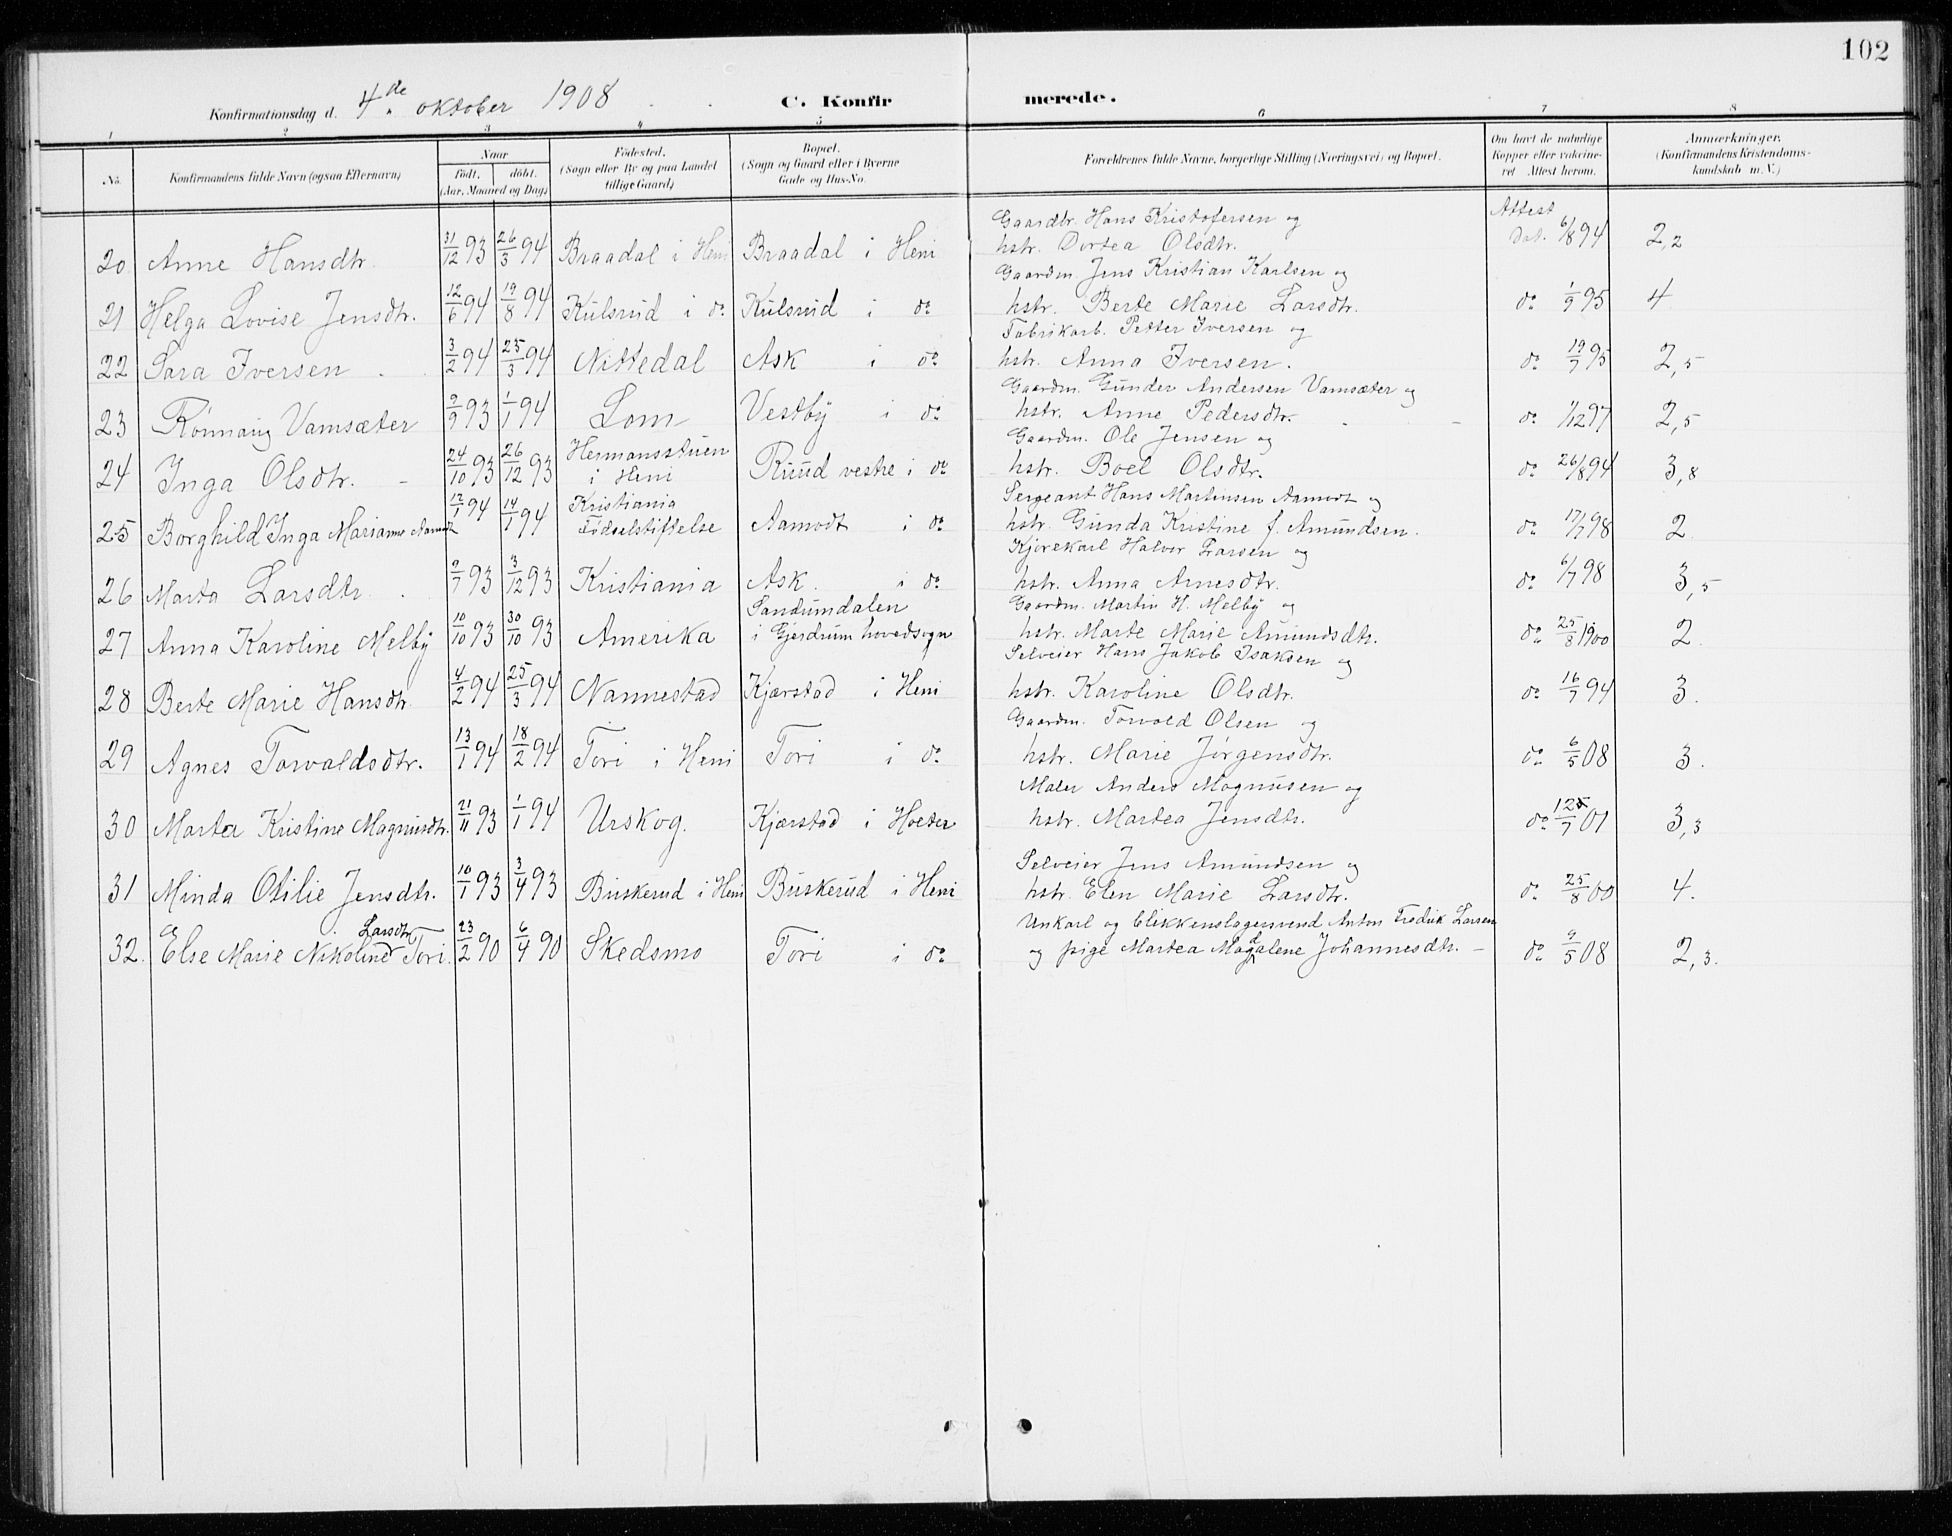 102
Konfirmationsdag d. 4de oktober 1908 C. Konfirmerede.
1 2 3 4 5 6 7 8
No. Konfirmandens fulde Navn (ogsaa Efternavn) Naar födt. döbt. (Aar, Maaned og Dag) Födested. (Sogn eller By og paa Landet tillige Gaard) Bopæl. (Sogn og Gaard eller i Byerne Gade og Hus-No. Forældrenes fulde Navne, borgerlige Stilling (Næringsvei) og Bopæl. Om havt de naturlige Kopper eller vakcineret Attest herom. Anmærkninger. (Konfirmandens Kristendomskundskab m. V.)
Gaardbr. Hans Kristofersen og Attest
20 Anne Hansdtr. 31/12 93 26/3 94 Braadal i Heni Braadal i Heni hstr. Dortea Olsdtr. Dat. 6/8 94 2,2
Gaardm. Jens Kristian Karlsen og
21 Helga Lovise Jensdtr. 12/6 94 19/8 94 Kulsrud i do Kulsrud i do hstr. Berte Marie Larsdtr. do 1/9 95 4
Fabrikarb. Petter Iversen og
22 Sara Iversen 3/2 94 25/3 94 Nittedal Ask i do hstr. Anna Iversen. do 19/7 95 2,5
Gaardm. Gunder Andersen Vamsæter og
23 Rønnaug Vamsæter 9/9 93 1/1 94 Lom Vestby i do hstr. Anne Pedersdtr. do 1/12 97 2,5
Gaardm. Ole Jensen og
24 Inga Olsdtr. 24/10 93 26/12 93 Hermansstuen i Heni Ruud vestre i do hstr. Boel Olsdtr. do 26/8 94 3,8
Sergeant Hans Martinsen Aamodt og
25 Borghild Inga Marianne Aamodt 12/1 94 14/1 94 Kristiania Fødselstiftelse Aamodt i do hstr. Gunda Kristine f. Amundsen. do 17/7 98 2
Kjørekarl Halvor Larsen og
26 Marta Larsdtr. 9/7 93 3/12 93 Kristiania Ask i do hstr. Anna Arnesdtr. do 6/7 98 3,5
Gaardm. Martin H. Melby og
27 Anna Karoline Melby 10/10 93 30/10 93 Amerika Sandumdalen i Gjerdrum hovedsogn hstr. Marte Marie Amundsdtr. do 25/8 1900 2.
Selveier Hans Jakob Isaksen og
28 Berte Marie Hansdtr. 4/2 94 25/3 94 Nannestad Kjærstad i Heni hstr. Karoline Olsdtr. do 16/7 94 3.
Gaardm. Torvald Olsen og
29 Agnes Torvaldsdtr. 13/1 94 18/2 94 Tori i Heni Tori i do hstr. Marie Jørgensdtr. do 6/5 08 3.
Maler Anders Magnusen og
30 Marta Kristine Magnusdtr. 21/11 93 1/1 94 Urskog. Kjærstad i Holter hstr. Martea Jensdtr. do 12/7 01 3,3
Selveier Jens Amundsen og
31 Minda Otilie Jensdtr. 10/1 93 3/4 93 Buskerud i Heni Buskerud i Heni hstr. Elen Marie Larsdtr. do 25/8 00 4.
Larsdtr. Unkarl og blikkenslagersvend Anton Fredrik Larsen
32. Else Marie Nikoline Tori. 23/2 90 6/4 90 Skedsmo Tori i do og pige Martea Magdalene Johannesdtr. do 9/5 08 2,3.